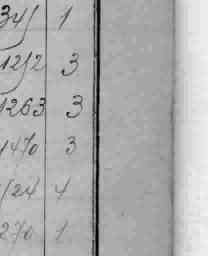 34 1
1212 3
1263 3
1470 3
124 4
270 1